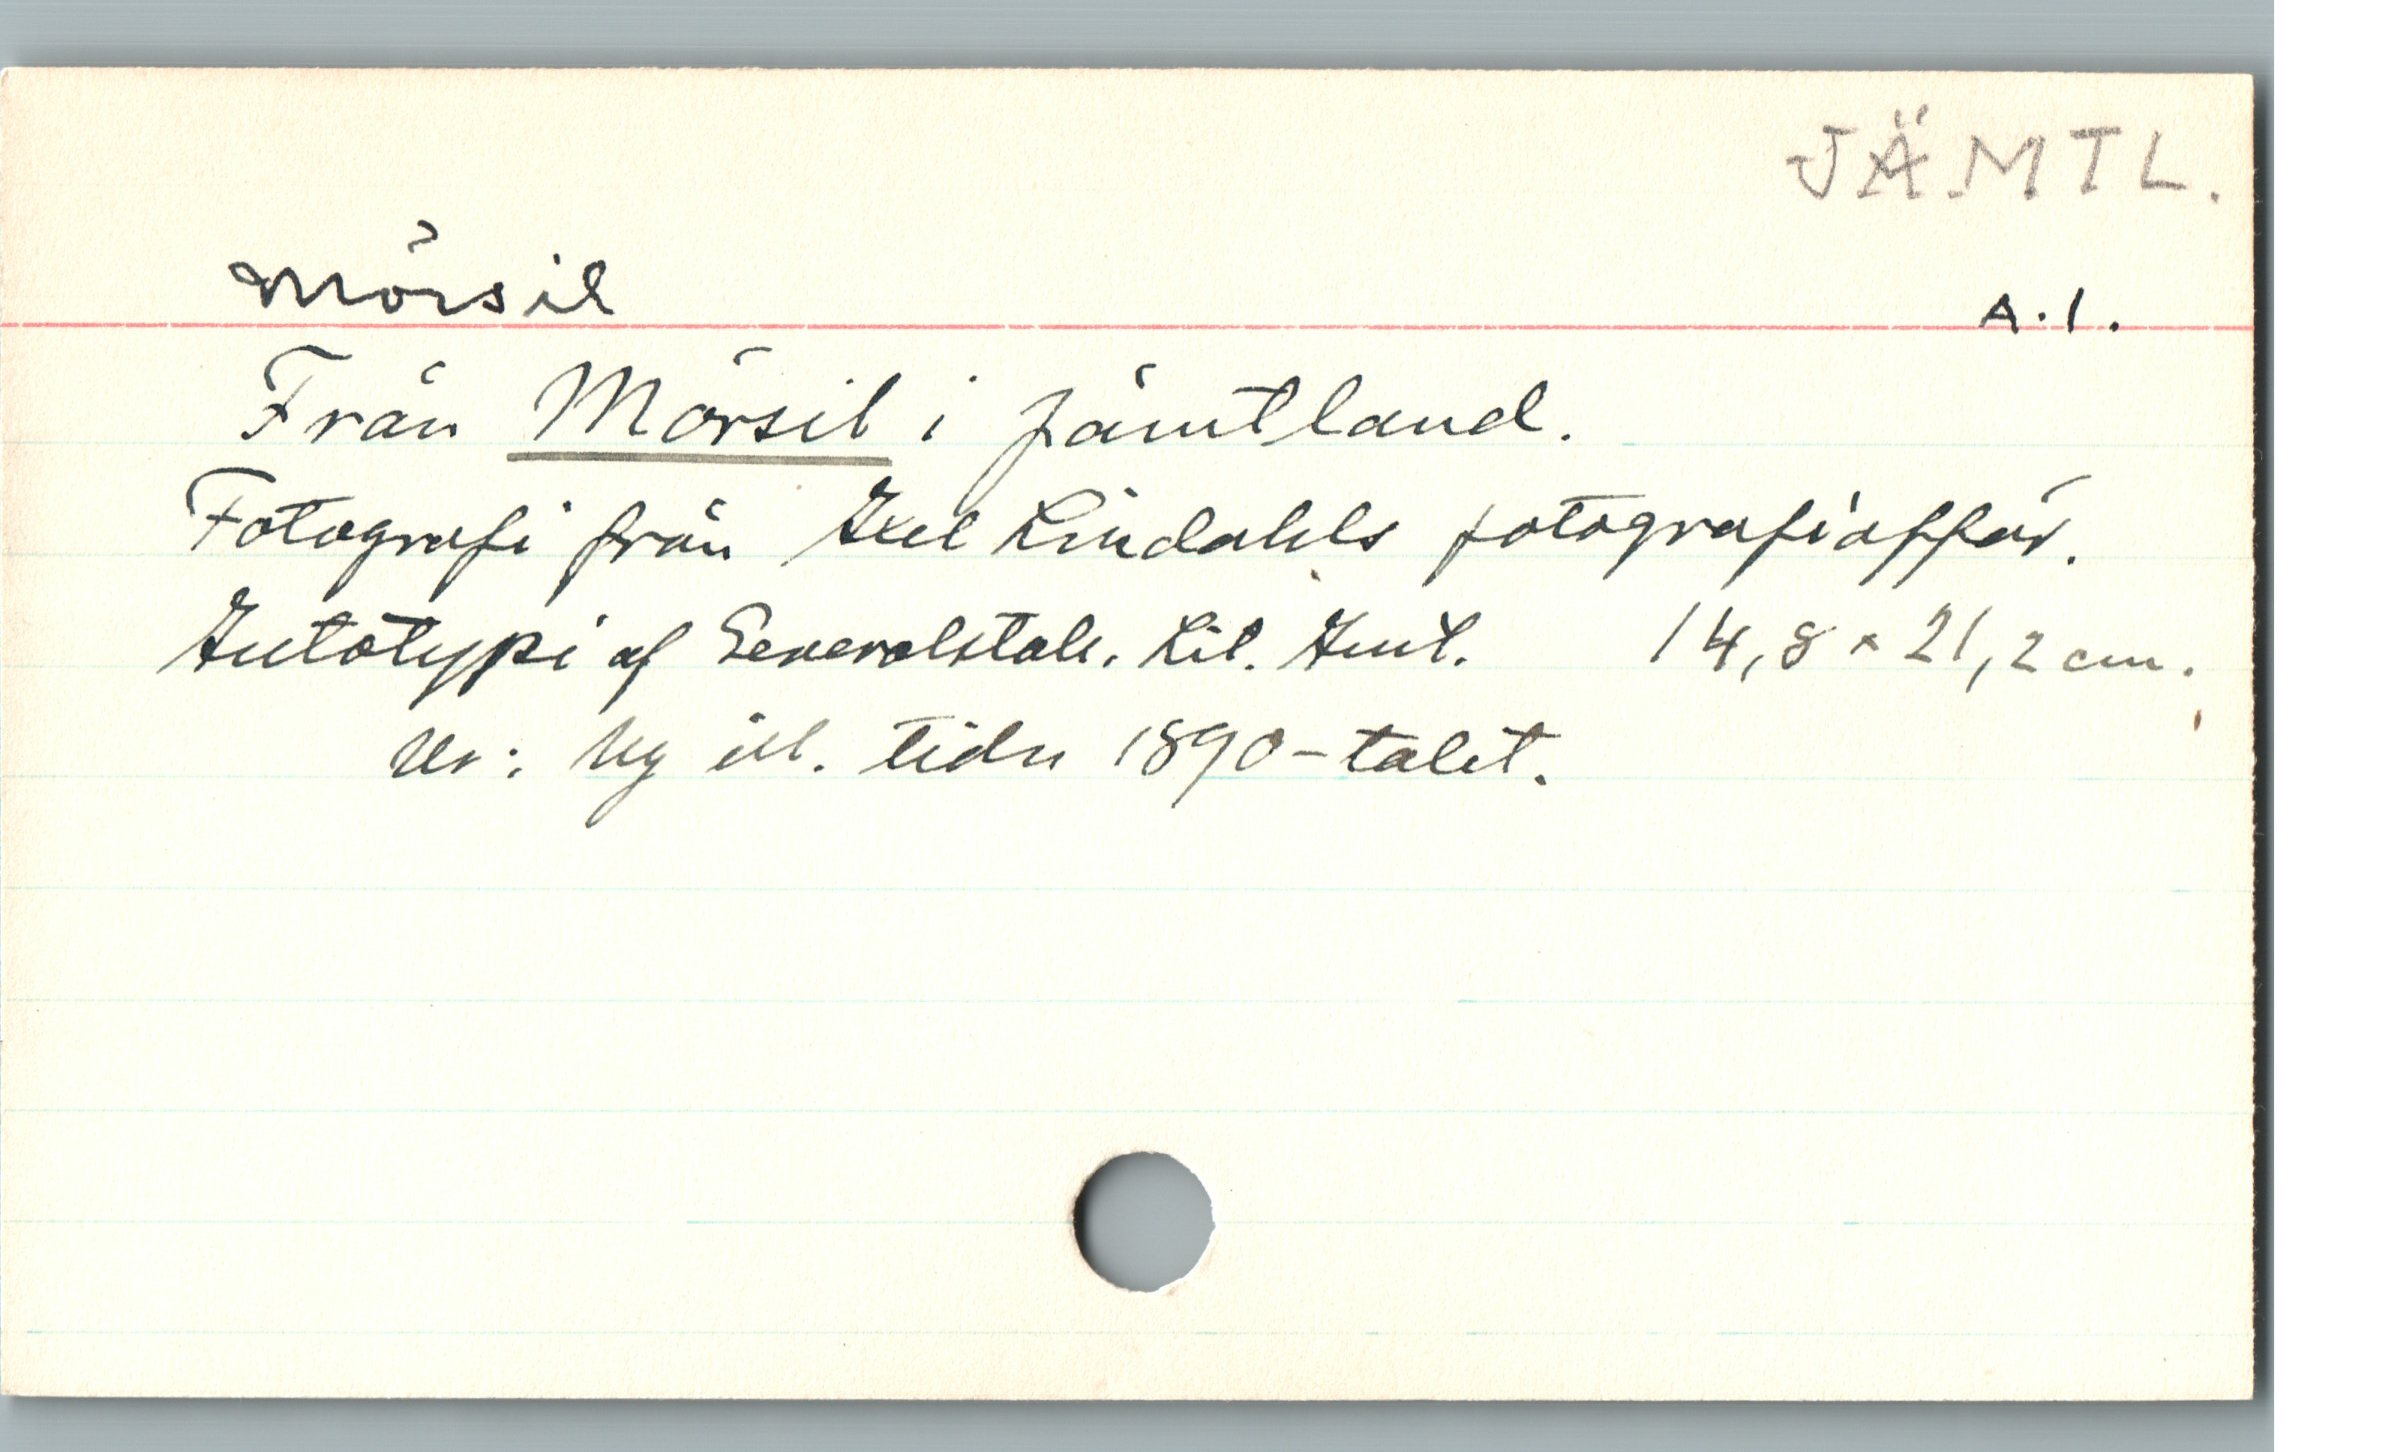 JÄMTL.
Mörsil A.1.
Från Mörsil i Jämtland.
Fotografi från Axel Lindahls fotografiaffär.
Autotypi af Generalstab. Lit. Anst. 14,8 x 21,2 cm.
Ur: Ny ill. tidn 1890-talet.